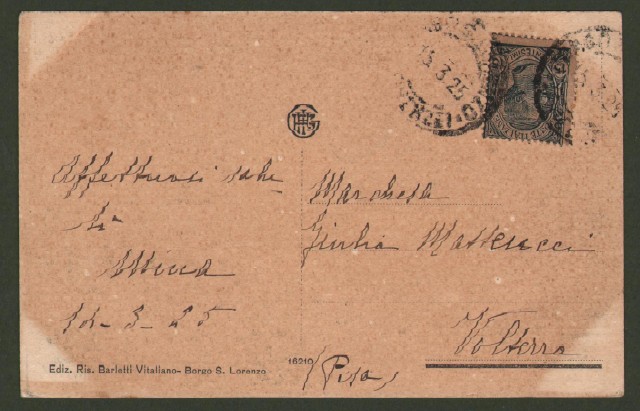 Affettuosi saluti
da
14-3-25
Marchesa
Giulia Matteucci
Volterra
(Pisa)
Ediz. Ris. Barletti Vitaliano- Borgo S. Lorenzo
16210